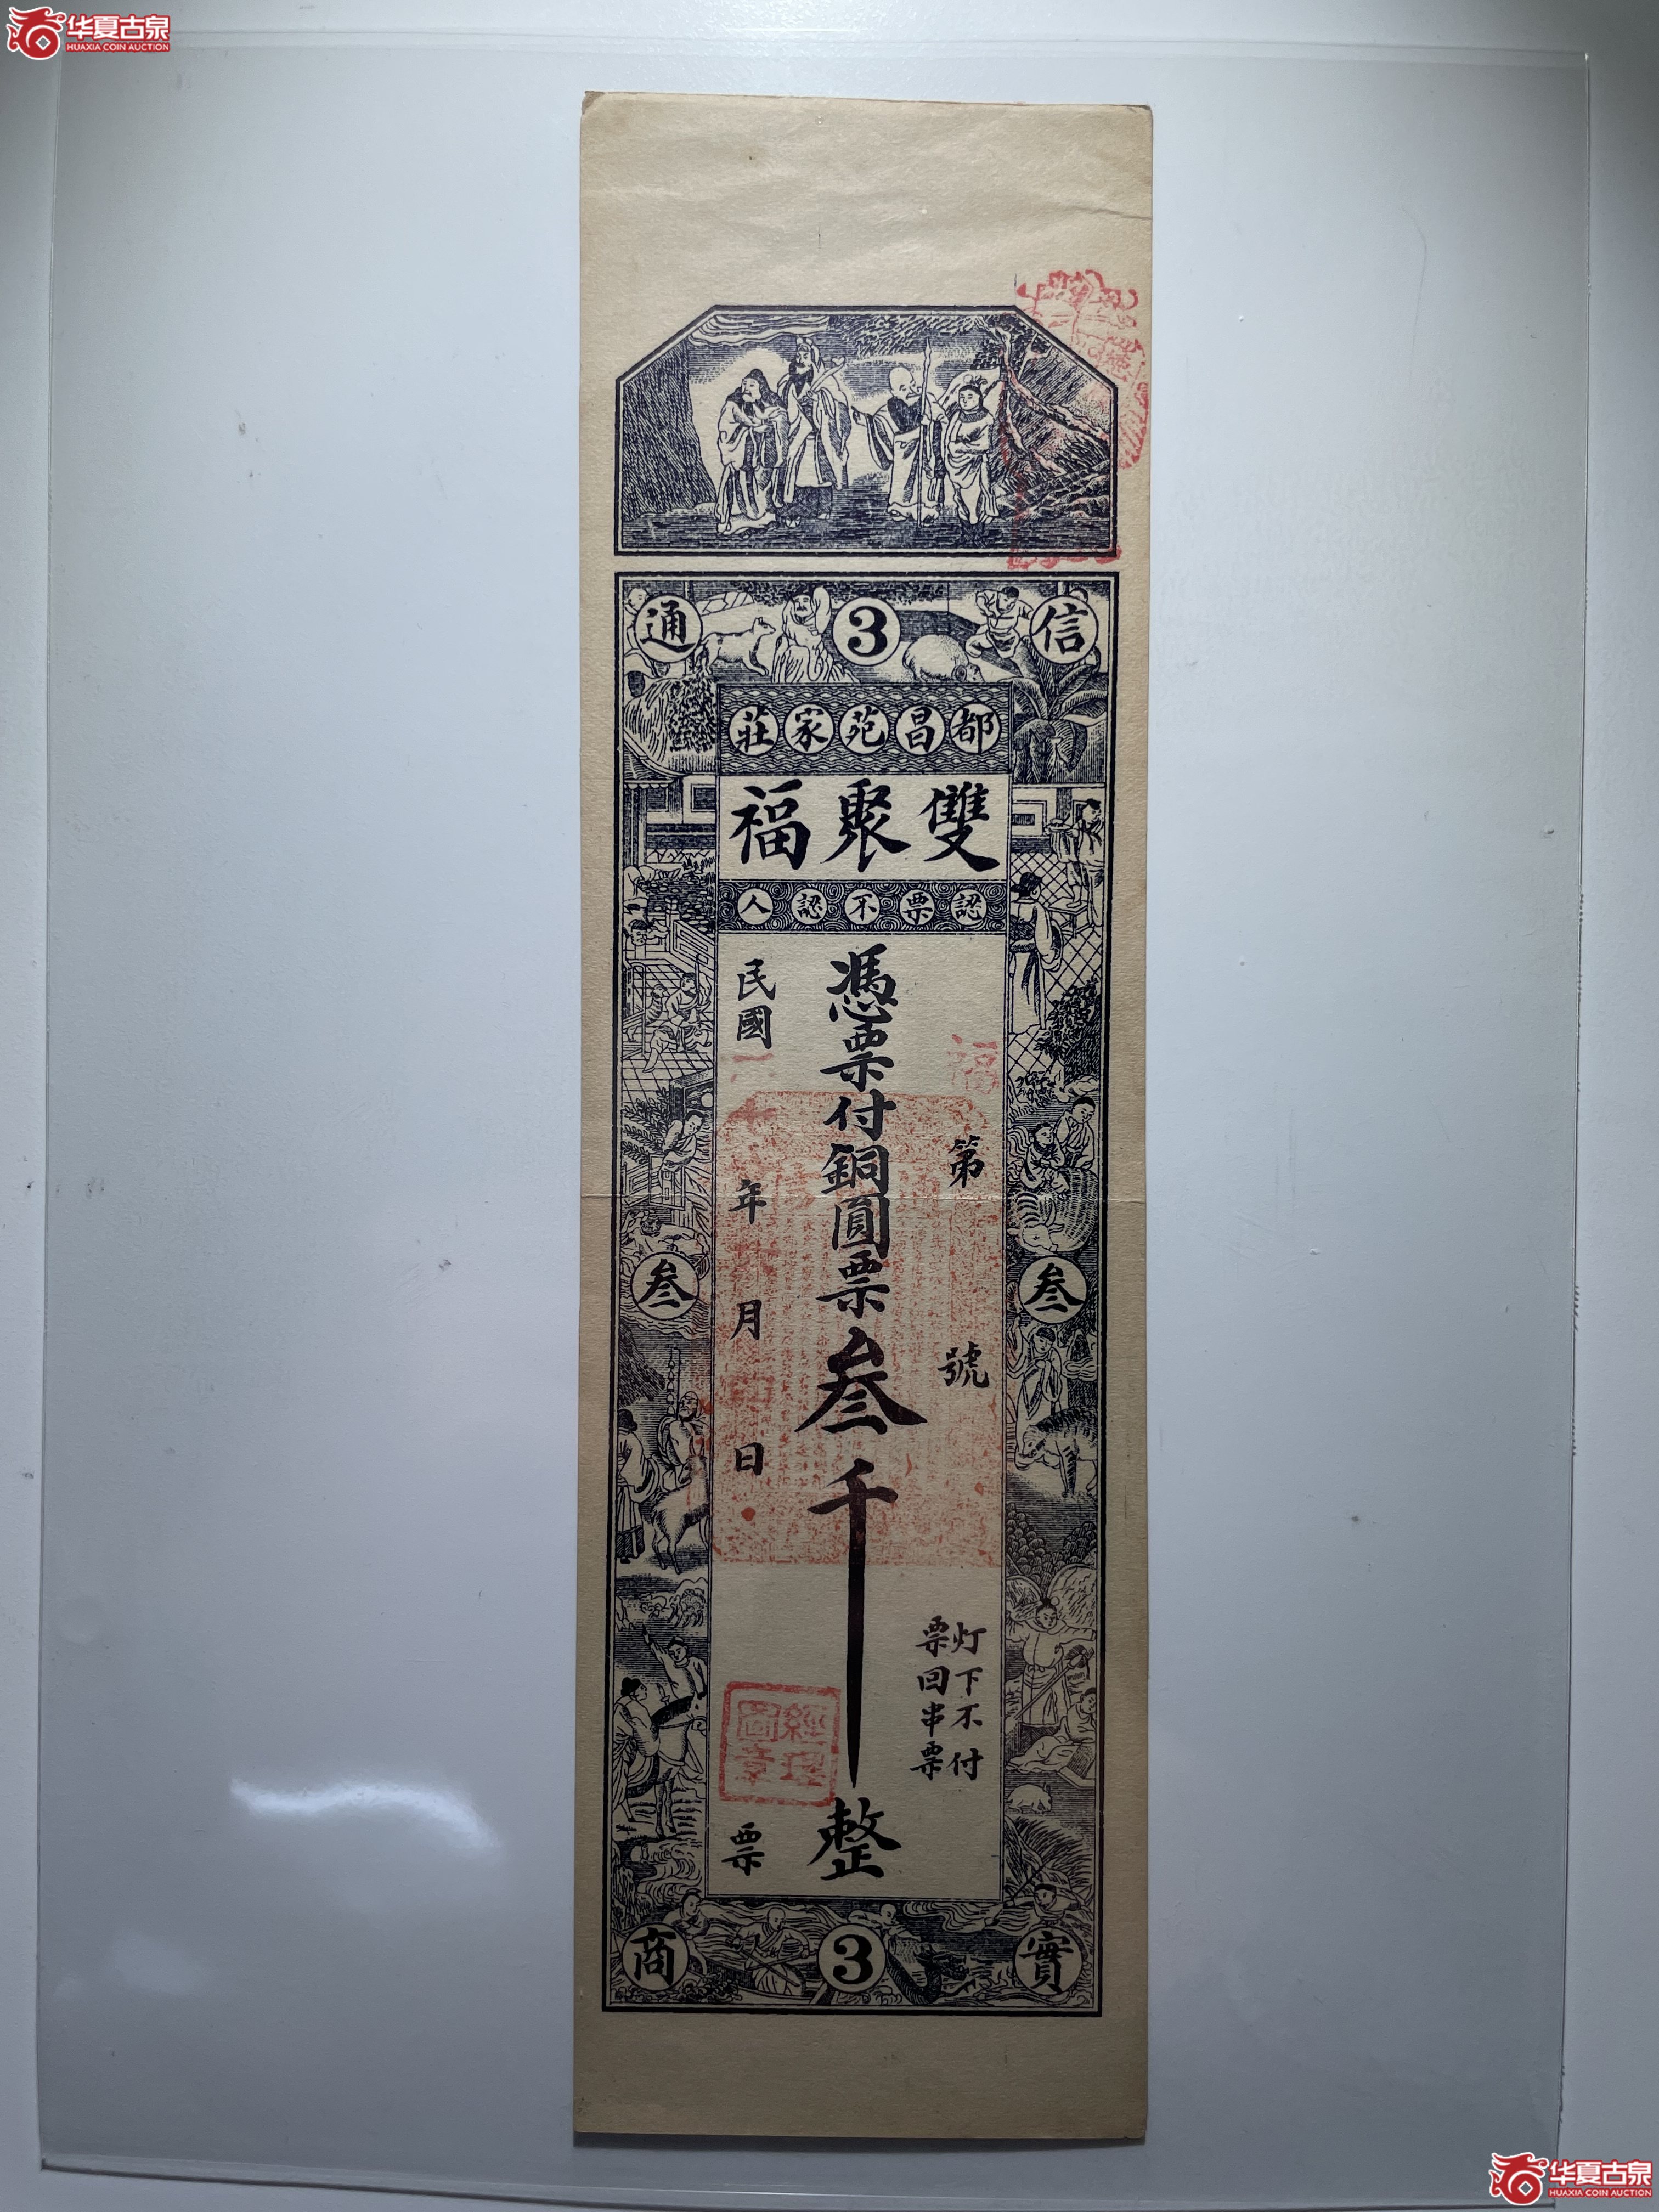 华夏古泉
HUAXIA COIN AUCTION
信3通
都昌苑家莊
雙聚福
認票不認人
第 號
憑票付銅圓票叁千整
民國 年 月 日 票
灯下不付
票回串票
叁
叁
福
經理
圖章
實3商
华夏古泉
HUAXIA COIN AUCTION